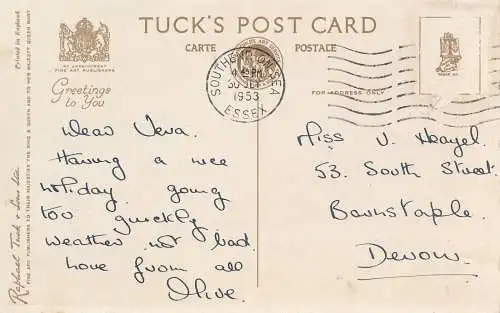 TUCK'S POST CARD
CARTE POSTALE
BY APPOINTMENT
FINE ART PUBLISHERS
Greetings
to You
Printed in England
Raphael Tuck & Sons Ltd.
FINE ART PUBLISHERS TO THEIR MAJESTIES THE KING & QUEEN AND TO HER MAJESTY QUEEN MARY
SOUTHEND-ON-SEA
1953
ESSEX
FOR ADDRESS ONLY
Dear Vera.
Having a nice
holiday going
too quickly
weather not bad.
Love from all
Olive.
Miss V.
53. South Street.
Barnstaple.
Devon.